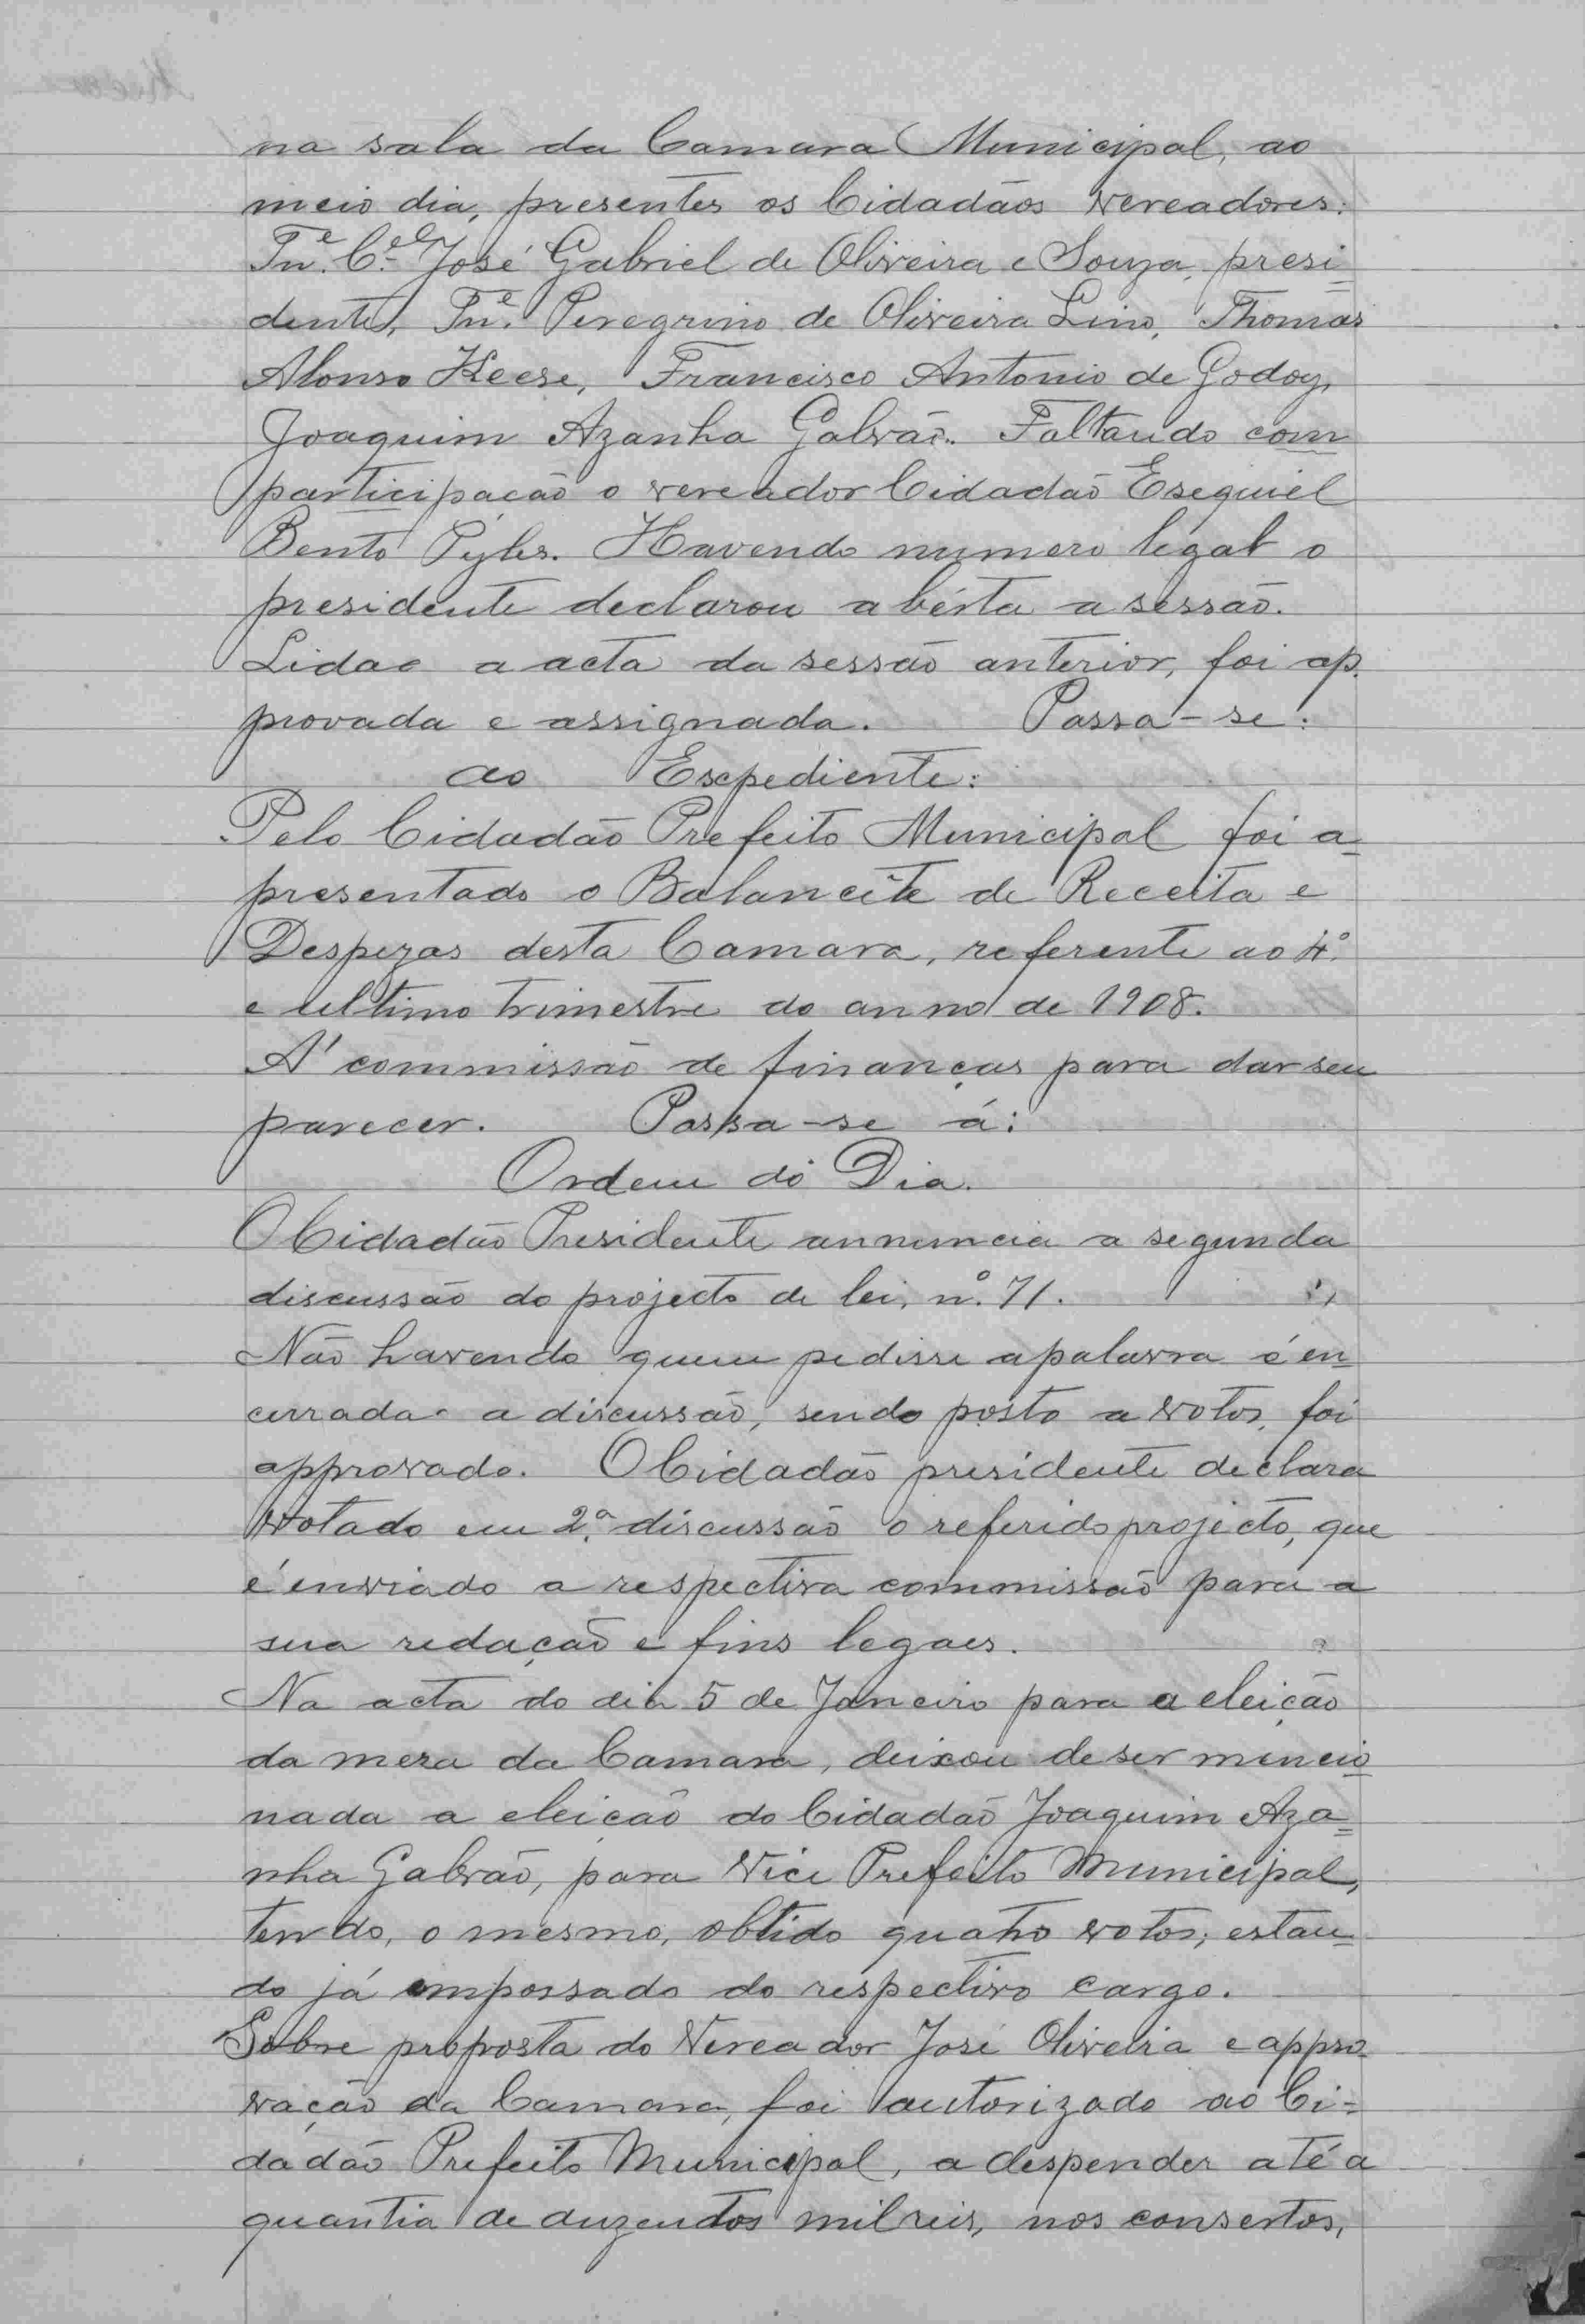 na sala da Camara Municipal, ao
meio dia, presentes os Cidadãos Vereadores:
Tne. Cel. José Gabriel de Oliveira e Souza, presi=
dente, Tne. Peregrino de Oliveira Lino, Thomas
Alonso Keese, Francisco Antonio de Godoy,
Joaquim Azanha Galvão. Faltando com
participação o vereador Cidadão Esequiel
Bento Pyles. Havendo numero legal o
presidente declarou abérta a sessão.
Lida a acta da sessão anterior, foi ap.
provada e assignada. Passa-se:
ao Expediente:
Pelo Cidadão Prefeito Municipal foi a=
presentado o Balancête de Receita e
Despezas desta Camara, referente ao 4º
e ultimo trimestre do anno de 1908.
A' commissão de finanças para dar seu
parecer. Passa-se á:
Ordem do Dia.
O Cidadão Presidente annuncia a segunda
discussão do projecto de lei, nº. 71.
Não havendo quem pedisse a palavra é en=
cerrada a discussão, sendo posto a votos, foi
approvado. O Cidadão presidente declara
votado em 2ª discussão o referido projecto, que
é enviado a respectiva commissão para a
sua redação e fins legaes.
Na acta do dia 5 de Janeiro para a eleição
da meza da Camara, deixou de ser mencio=
nada a eleição do Cidadão Joaquim Aza=
nha Galvão, para Vice Prefeito Municipal,
tendo, o mesmo, obtido quatro votos; estan=
do já empossado do respectivo cargo.
Sobre proposta do Vereador José Oliveira e appro-
vação da Camara, foi autorizado ao Ci=
dadão Prefeito Municipal, a despender até a
quantia de duzentos mil reis, nos consertos,